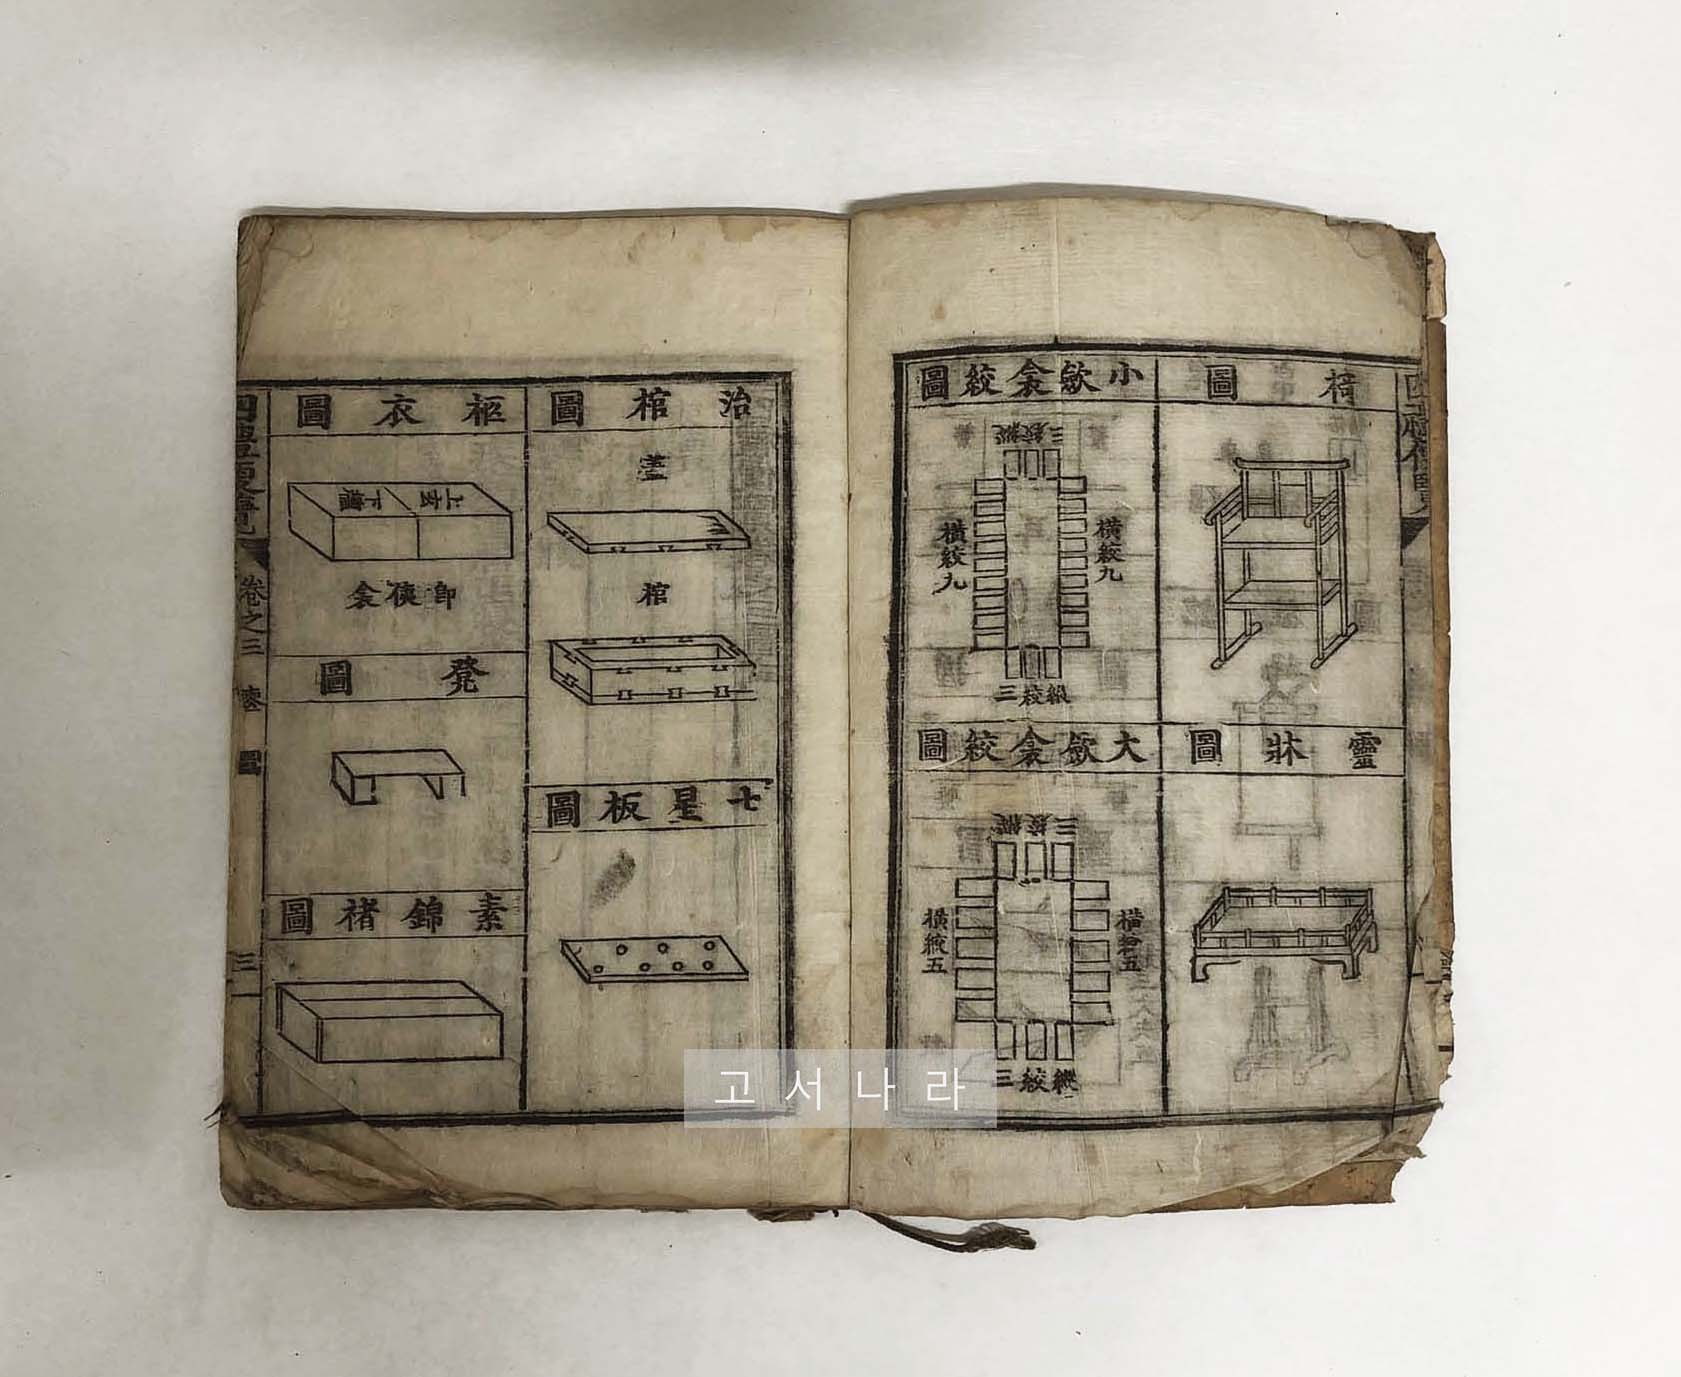 椅圖
靈牀圖
小斂衾絞圖
縱絞三
橫絞九
橫絞九
縱絞三
大斂衾絞圖
縱絞三
橫絞五
橫絞五
縱絞三
治棺圖
蓋
棺
七星板圖
柩衣圖
上玄
下纁
卽侇衾
凳圖
素錦褚圖
四禮便覽
卷之三
圖
三
고서나라